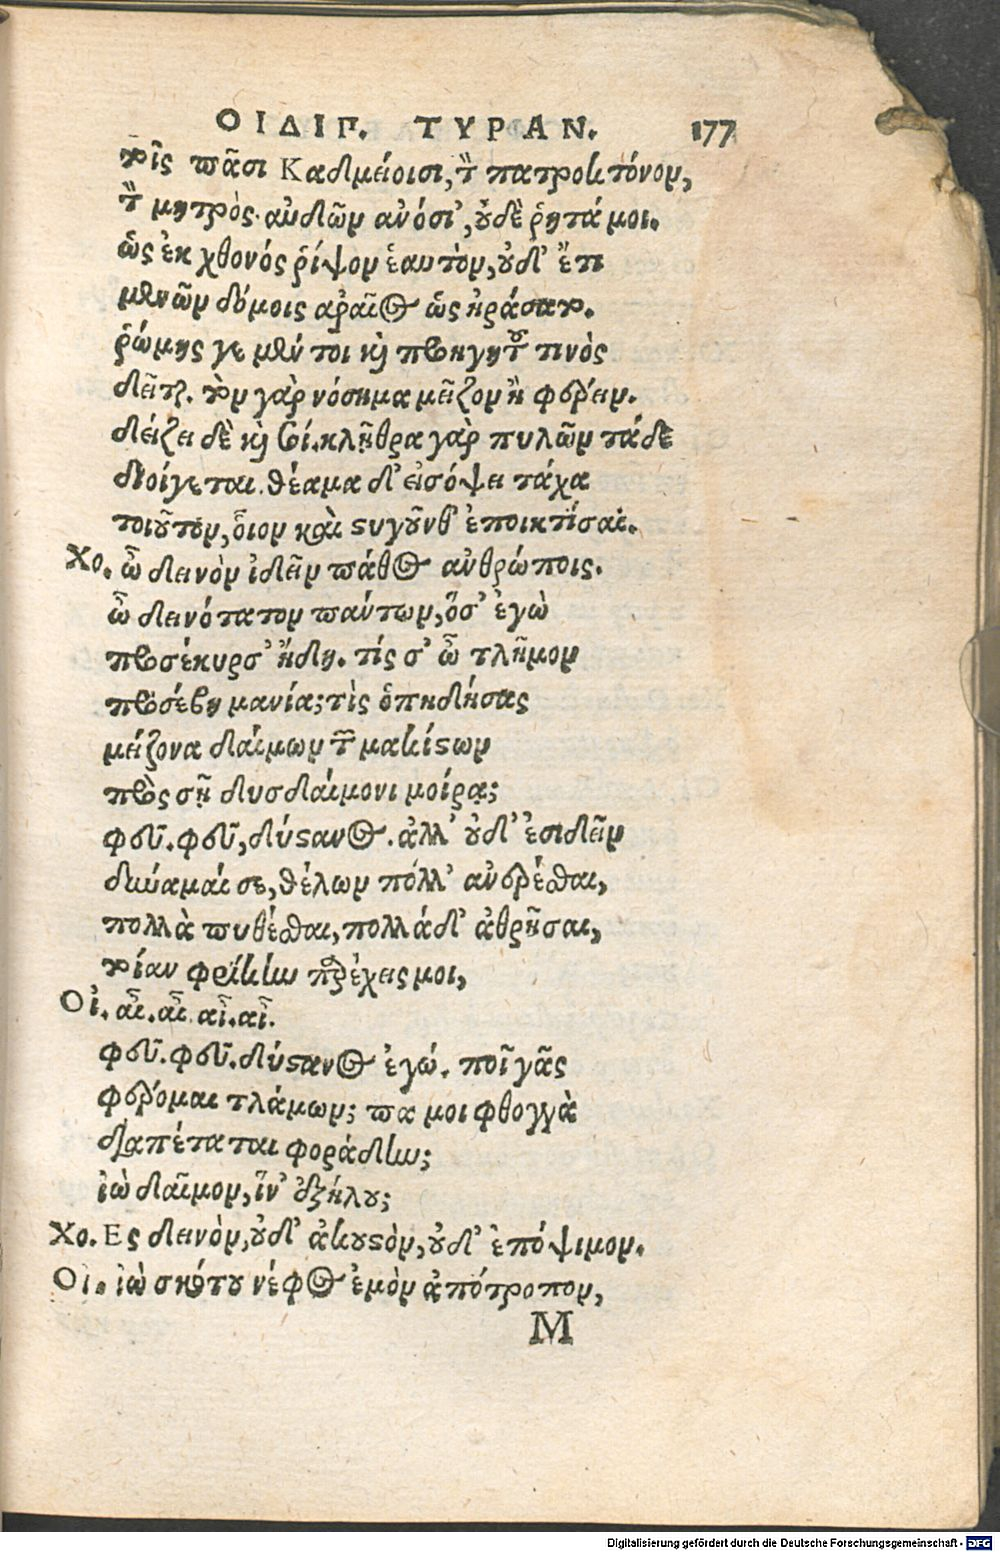 ΟΙΔΙΠ. ΤΥΡΑΝ. 177
τοῖς πᾶσι Καδμείοισι, τὸν πατροκτόνον,
τὸν μητρὸς· αὐδῶν ἀνόσι', οὐδὲ ῥητά μοι.
ὡς ἐκ χθονός ῥίψον ἑαυτὸν, οὐδ' ἔτι
μενῶν δόμοις ἀραῖος ὡς ἠράσατο.
ῥώμης γε μέν τοι καὶ προηγητοῦ τινὸς
δεῖται. τὸ γὰρ νόσημα μεῖζον ἢ φέρειν.
δείξει δὲ καὶ σοί. κλῇθρα γὰρ πυλῶν τάδε
διοίγεται. θέαμα δ' εἰσόψει τάχα
τοιοῦτον, οἷον καὶ στυγοῦντ' ἐποικτίσαι.
Χο. ὦ δεινὸν ἰδεῖν πάθος ἀνθρώποις.
ὦ δεινότατον πάντων, ὅσ' ἐγὼ
προσέκυρσ' ἤδη. τίς σ' ὦ τλῆμον
προσέβη μανία; τὶς ὁ πηδήσας
μείζονα δαίμων τῶν μακίστων
πρὸς σῇ δυσδαίμονι μοίρᾳ;
φεῦ. φεῦ, δύστανος. ἀλλ' οὐδ' ἐσιδεῖν
δύναμαί σε, θέλων πόλλ' ἀνερέσθαι,
πολλὰ πυθέσθαι, πολλά δ' ἀθρῆσαι,
τοίαν φρίκην παρέχεις μοι,
Οἰ. αἶ. αἶ. αἶ. αἶ.
φεῦ. φεῦ. δύστανος ἐγώ. ποῖ γᾶς
φέρομαι τλάμων; πᾶ μοι φθογγὰ
διαπέταται φοράδην;
ἰὼ δαῖμον, ἵν' ἐξήλου;
Χο. Ες δεινὸν, οὐδ' ἀκουστὸν, οὐδ' ἐπόψιμον.
Οι. ἰὼ σκότου νέφος ἐμὸν ἀπότροπον,
Μ
Digitalisierung gefördert durch die Deutsche Forschungsgemeinschaft - DFG